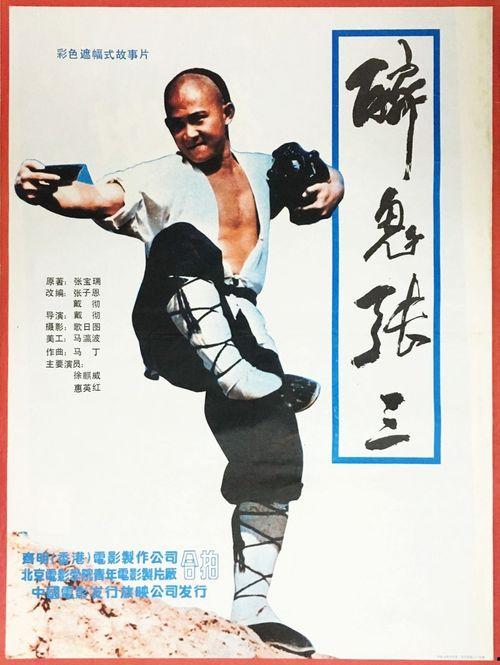 彩色遮幅式故事片
醉鬼张三
原著：张宝瑞
改编：张子恩
戴 彻
导演：戴 彻
摄影：歌日图
美工：马瀛波
作曲：马 丁
主要演员：
徐麒威
惠英红
齊明(香港)電影製作公司
北京電影学院青年電影製片廠
合拍
中國電影发行放映公司发行